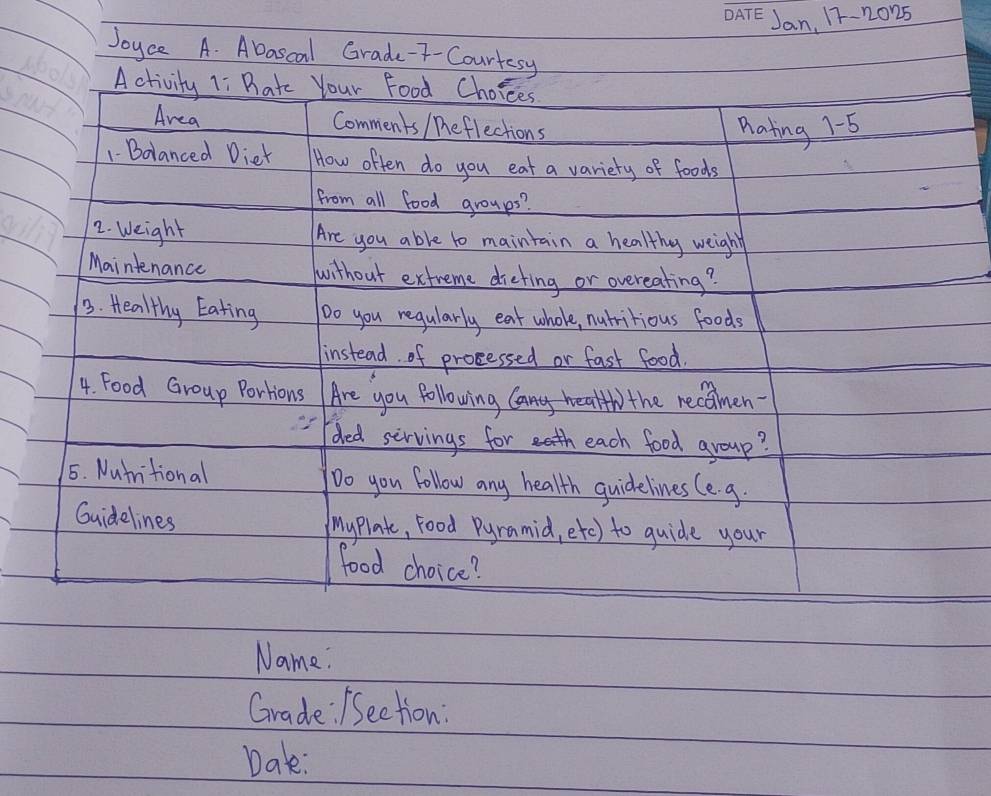 DATE Jan, 17-2025
Joyce A. Abascal Grade-7-Courtesy
Activity 1: Rate Your Food Choices
Area Comments/Reflections Rating 1-5
1. Balanced Diet How often do you eat a variety of foods
from all food groups?
2. Weight Are you able to maintain a healthy weight
Maintenance without extreme dieting or overeating?
3. Healthy Eating Do you regularly eat whole, nutritious foods
instead of processed or fast food.
4. Food Group Portions Are you following (any health) the recommen-
ded servings for eath each food group?
5. Nutritional Do you follow any health guidelines (e.g.
Guidelines MyPlate, Food Pyramid, etc) to guide your
food choice?
Name:
Grade:/Section:
Date: